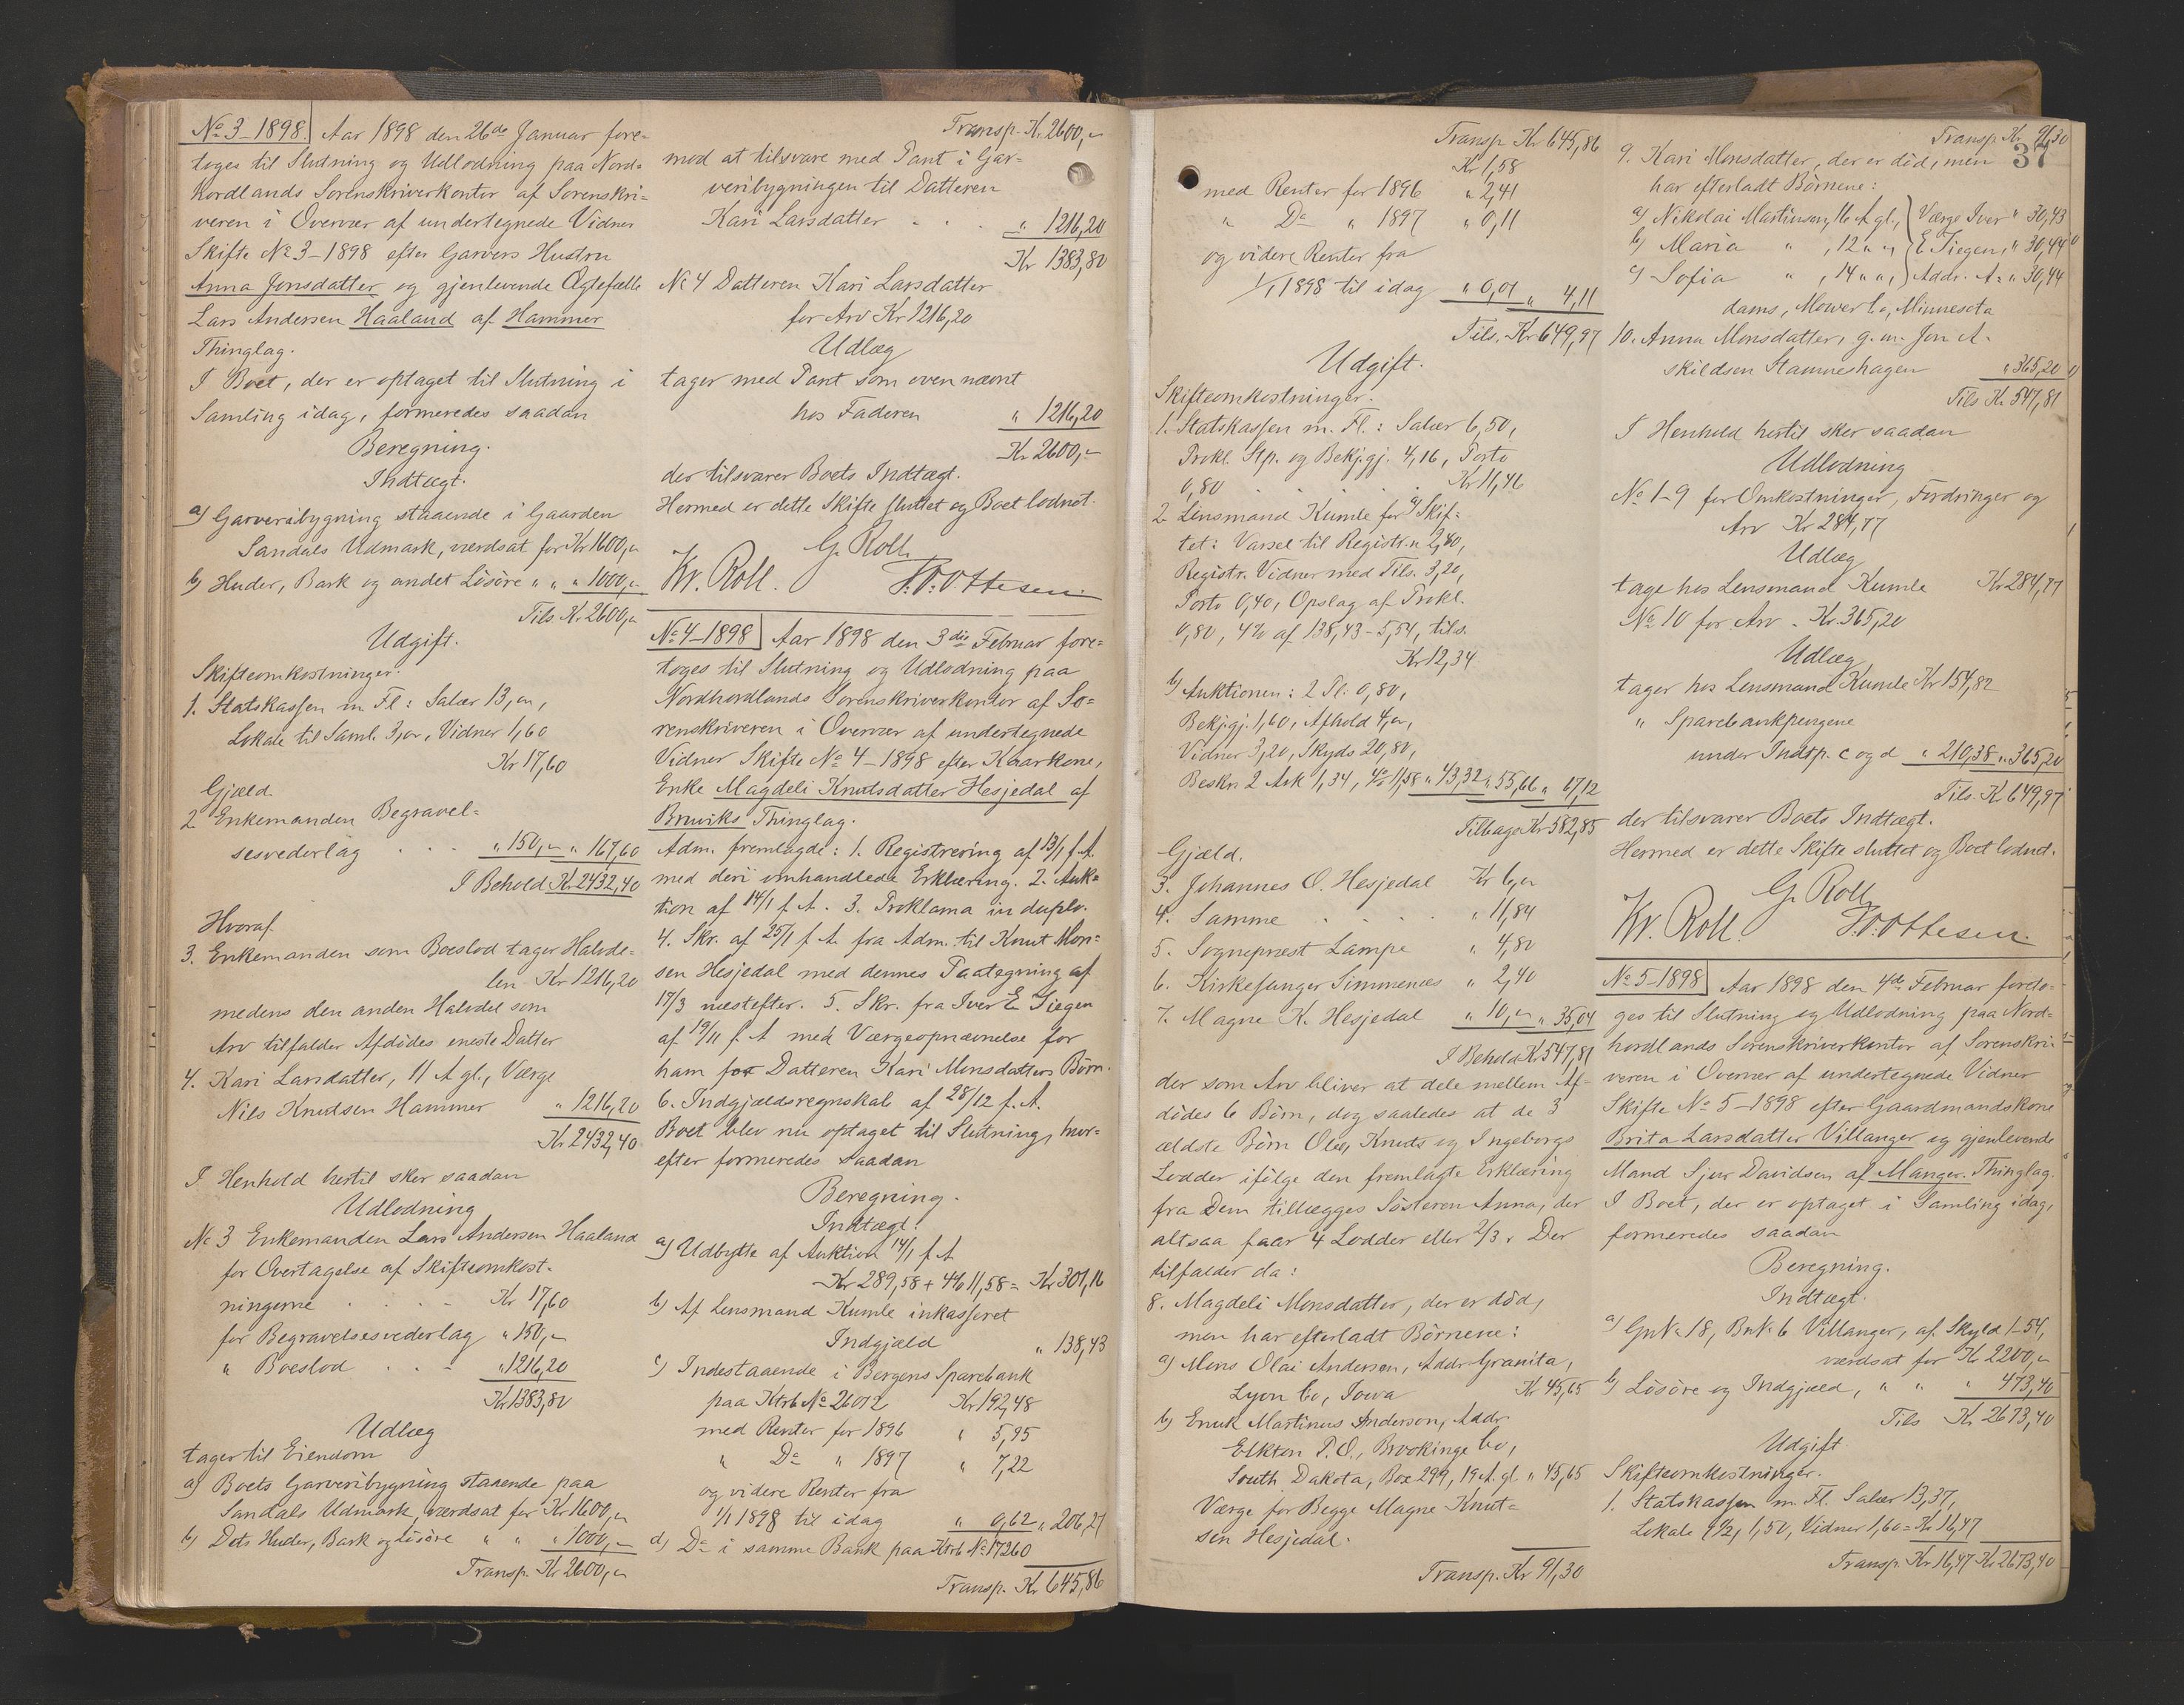 No 3-1898. Aar 1898 den 26de Januar fore-
toges til Slutning og Udlodning paa Nord-
hordlands Sorenskriverkontor af Sorenskri-
veren i Overvær af undertegnede Vidner
Skifte No 3-1898 efter Garvers Hustru
Anna Jonsdatter og gjenlevende Ægtefælle
Lars Andersen Haaland af Hammer
Thinglag.
I Boet, der er optaget til Slutning i
Samling idag, formeredes saadan
Beregning.
Indtægt.
a) Garveribygning staaende i Gaarden
Sandals Udmark, værdsat for Kr 1600,"
b) Huder, Bark og andet Lösöre " " " 1000,"
Tils Kr. 2600,"
Udgift.
Skifteomkostninger.
1. Statskassen m Fl: Salær 13,",
Lokale til Saml. 3,", Vidner 1,60
Kr 17,60
Gjæld.
2 Enkemanden Begravel-
sesvederlag . . . " 150,- " 167,60
I Behold Kr. 2432,40
Hvoraf.
3. Enkemanden som Boeslod tager Halvde-
len Kr 1216,20
medens den anden Halvdel som
Arv tilfalder Afdödes eneste Datter
4. Kari Larsdatter, 11 A gl., Værge
Nils Knutsen Hammer " 1216,20
Kr 2432,40
I Henhold hertil sker saadan
Udlodning
No 3 Enkemanden Lars Andersen Haaland
for Overtagelse af Skifteomkost-
ningerne . . . . Kr 17,60
for Begravelsesvederlag " 150,-
" Boeslod . . . " 1216,20
Kr 1383,80
Udlæg
tager til Eiendom
a) Boets Garveribygning staaende paa
Sandals Udmark, værdsat for Kr 1600,"
b) Dets Huder, Bark og Lösöre " " " 1000,-
Transp. Kr 2600,"
Transp. Kr. 2600,-
mod at tilsvare med Pant i Gar-
veribygningen til Datteren
Kari Larsdatter . . . " 1216,20
Kr 1383,80
No 4 Datteren Kari Larsdatter
for Arv Kr 1216,20
Udlæg
tager med Pant som oven nævnt
hos Faderen " 1216,20
Kr 2600,-
der tilsvarer Boets Indtægt.
Hermed er dette Skifte sluttet og Boet lodnet.
G. Roll
Kr. Roll. J.O. Ottesen.
No 4-1898 Aar 1898 den 3die Februar fore-
toges til Slutning og Udlodning paa
Nordhordlands Sorenskriverkontor af So-
renskriveren i Overvær af undertegnede
Vidner Skifte No 4-1898 efter Kaarkone,
Enke Magdeli Knutsdatter Hesjedal af
Bruviks Thinglag.
Adm. fremlagde: 1. Registrering af 13/1 f. A.
med deri omhandlede Erklæring. 2. Auk-
tion af 14/1 f. A. 3. Proklama in duplo.
4. Skr. af 25/1 f. A. fra Adm. til Knut Mon-
sen Hesjedal med dennes Paategning af
17/3 næstefter. 5. Skr. fra Iver E Tiegen
af 19/11 f. A med Værgeopnævnelse for
ham for Datteren Kari Monsdatters Börn.
6. Indgjældsregnskab af 28/12 f. A.
Boet blev nu optaget til Slutning, hvor-
efter formeredes saadan
Beregning.
Indtægt.
a) Udbytte af Auktion 14/1 f. A
Kr 289,58 + 4% 11,58 = Kr 301,16
b) Af Lensmand Kumle inkasseret
Indgjæld " 138,43
c) Indestaaende i Bergens Sparebank
paa Ktrb No 26012 Kr 192,48
med Renter for 1896 " 5,95
" Do " 1897 " 7,22
og videre Renter fra
1/1 1898 til idag " 0,62 " 206,27
d) Do i samme Bank paa Ktrb No 17260
Transp. Kr 645,86
Transp. Kr 645,86
Kr 1,58
med Renter for 1896 " 2,41
" Do " 1897 " 0,11
og videre Renter fra
1/1 1898 til idag " 0,01 " 4,11
Tils. Kr 649,97
Udgift.
Skifteomkostninger.
1. Statskassen m. Fl.: Salær 6,50,
Prokl. Stp. og Bekj.gj. 4,16, Porto
0,80 . . . . Kr 11,46
2 Linsmand Kumle for a) Skif-
tet: Varsel til Registr.n 2,40,
Registr. Vidner med Tils. 3,20,
Porto 0,40, Opslag af Prokl.
0,80, 4% af 138,43 - 5,54, tils.
Kr 12,34
b) Auktionen: 2 Pl. 0,80,
Bekj.gj. 1,60, Afhold 4,",
Vidner 3,20, Skyds 20,80,
Beskr. 2 Ark 1,34, 4% 11,58 " 43,32 " 55,66 " 67,12
Tilbage Kr 582,85
Gjæld.
3. Johannes O. Hesjedal Kr 6,"
4. Samme . . . . " 11,84
5. Sogneprest Lampe " 4,80
6. Kirkesanger Simmenæs " 2,40
7. Magne K. Hesjedal " 10,- " 35,04
I Behold Kr. 547,81
der som Arv bliver at dele mellem Af-
dödes 6 Börn, dog saaledes at de 3
ældste Börn Oles, Knuts og Ingeborgs
Lodder ifölge den fremlagte Erklæring
fra Dem tillægges Sösteren Anna, der
altsaa faar 4 Lodder eller 2/3. Der
tilfalder da:
8. Magdeli Monsdatter, der er död,
men har efterladt Börnene:
a) Mons Olai Andersen, Addr. Granita,
Lyon Co, Iowa Kr 45,65
b) Enuk Martinus Anderson, Addr.
Elkton P.O., Brookinge Co,
South Dakota, Box 299, 19 A. gl. " 45,65
Værge for Begge Magne Knut-
sen Hesjedal.
Transp. Kr 91,30
Transp. Kr 91,30
37
9. Kari Monsdatter, der er död, men
har efterladt Börnene:
a) Nikolai Martinson, 16 A gl., Værge Iver " 30,43
b) Maria " , 12 " ", E Tiegen, " 30,44
c) Sofia " , 14 " ", Addr. A- " 30,44
dams, Mower Co, Minnesota
10. Anna Monsdatter, g. m. Jon A-
skildsen Stamneshagen " 365,20
Tils Kr. 547,81
I Henhold hertil sker saadan
Udlodning
No 1-9 for Omkostninger, Fordringer og
Arv Kr 284,77
Udlæg
tage hos Lensmand Kumle Kr 284,77
No 10 for Arv - Kr. 365,20
Udlæg
tager hos Lensmand Kumle Kr 154,82
" Sparebankpengene
under Indtp. c og d " 210,38 " 365,20
Tils. Kr 649,97
der tilsvarer Boets Indtægt.
Hermed er dette Skifte sluttet og Boet lodnet.
G. Roll
Kr. Roll. J.O. Ottesen.
No 5-1898 Aar 1898 den 4de Februar foreto-
ges til Slutning og Udlodning paa Nord-
hordlands Sorenskriverkontor af Sorenskri-
veren i Overvær af undertegnede Vidner
Skifte No 5-1898 efter Gaardmandskone
Brita Larsdatter Villanger og gjenlevende
Mand Sjur Davidsen af Manger Thinglag.
I Boet, der er optaget i Samling idag,
formeredes saadan
Beregning.
Indtægt.
a) Gno 18, Bno 6 Villanger, af Skyld 1-54,
værdsat for Kr 2200,"
b) Lösöre og Indgjæld, " " " 473,40
Tils Kr. 2673,40
Udgift
Skifteomkostninger.
1. Statskassen m. Fl. Salær 13,37,
Lokale 1,50, Vidner 1,60 = Kr 16,47
Transp. Kr 16,47 Kr 2673,40